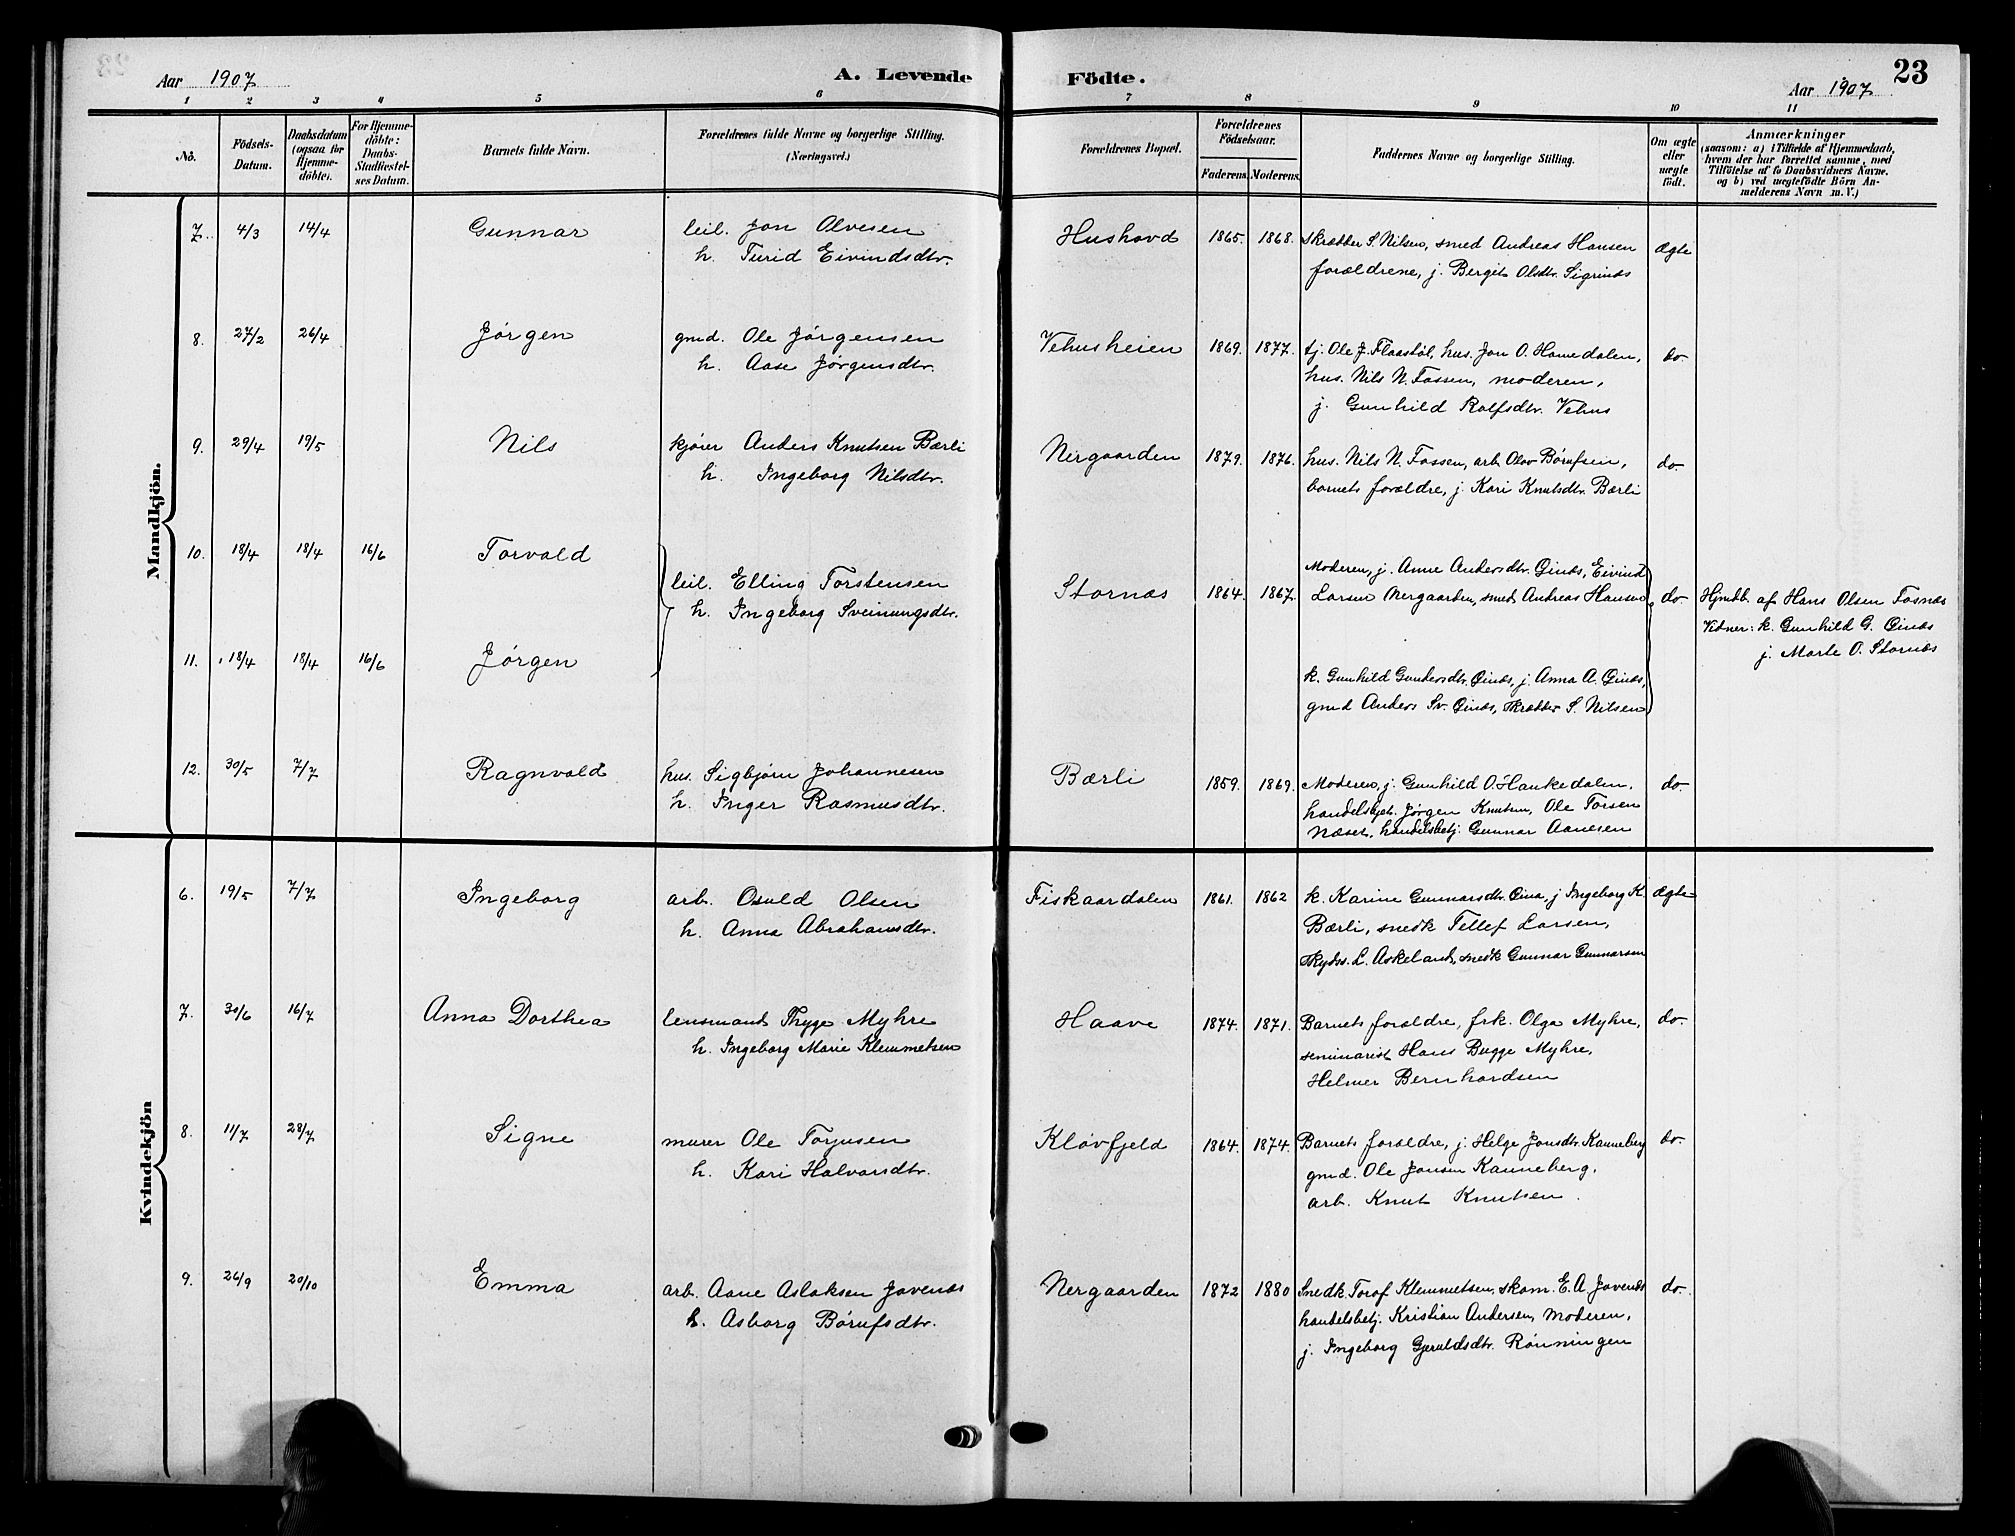 Aar 1907
A. Levende Födte.
23
Aar 1907
1 2 3 4 5 6 7 8 9 10 11
No.
Födsels-Datum.
Daabsdatum (ogsaa for Hjemme-döbte).
For Hjemme-döbte: Daabs-Stadfæstel-ses Datum.
Barnets fulde Navn.
Forældrenes fulde Navne og borgerlige Stilling.
(Næringsvei.)
Forældrenes Bopæl.
Forældrenes Födselsaar.
Faderens. Moderens.
Faddernes Navne og borgerlige Stilling.
Om ægte eller uægte födt.
Anmærkninger
(saasom: a) i Tilfælde af Hjemmedaab,
hvem der har forrettet samme, med
Tilföielse af to Daabsvidners Navne.
og b) ved uægtefödte Börn An-
melderens Navn m. V.)
Mandkjön.
7. 4/3 14/4 Gunnar leil. Jon Olvesen Hushovd 1865. 1868. skrædder S. Nilsen, smed Andreas Hansen ægte
h. Turid Eivindsdtr. forældrene, j. Bergit Olsdtr. Sigrinæs
8. 27/2 26/4 Jørgen gmd. Ole Jørgensen Vehusheien 1869. 1877. tj. Ole J. Flaastøl, hus. Jon O. Homedalen, do.
h. Aase Jørgensdtr. hus. Nils N. Fossen, moderen,
j. Gunhild Rolfsdtr. Vehus
9. 29/4 19/5 Nils kjører Anders Knutsen Bærli Nergaarden 1879. 1876. hus. Nils N. Fossen, arb. Olav Børufsen, do
h. Ingeborg Nilsdtr. barnets forældre, j. Kari Knutsdtr. Bærli
10. 18/4 18/4 16/6 Torvald Moderen, j. Anne Andersdtr. Øinæs, Eivind
leil. Elling Torstensen Stornæs 1864. 1867. Larsen Nergaarden, smed Andreas Hansen do. Hjmdb. af Hans Olsen Fosnæs
h. Ingeborg Sveinungsdtr. Vidner: k. Gunhild G. Øinæs
11. 18/4 18/4 16/6 Jørgen j. Marte O. Stornæs
k. Gunhild Gundersdtr. Øinæs, j. Anna A. Øinæs,
gmd Anders Sv. Øinæs, skrædder S. Nilsen
12. 30/5 7/7 Ragnvald hus. Sigbjørn Johannesen Bærli 1859. 1869. Moderen, j. Gunhild O. Haukedalen, do.
h. Inger Rasmusdtr. handelsbetj. Jørgen Knutsen, Ole Torsen
Næset, handelsbetj. Gunnar Aanesen
Kvindekjön
6. 19/5 7/7 Ingeborg arb. Osuld Olsen Fiskaardalen 1861. 1862 k. Karine Gunnarsdtr. Øina, j Ingeborg K. ægte
h. Anna Abrahamsdtr. Bærli, snedk Tellef Larsen,
Skydss. L. Askeland, snedk Gunnar Gunnarsen
7. 30/6 16/7 Anna Dorthea lensmand Thyge Myhre Haave 1874. 1871. Barnets forældre, frk. Olga Myhre, do.
h. Ingeborg Marie Klemmetsen seminarist Hans Bugge Myhre,
Helmer Bernhardsen
8. 11/7 28/7 Signe murer Ole Torjusen Kløvfjeld 1864. 1874. Barnets forældre, j. Helge Jonsdtr. Kanneberg do.
h. Kari Halvorsdtr. gmd. Ole Jonsen Kanneberg,
arb. Knut Knutsen.
9. 26/9 20/10 Emma arb. Aane Aslaksen Jovenæs Nergaarden 1872 1880 Snedk. Torof Klemmetsen, skom. E. A. Jovenæs do.
h. Asborg Børufsdtr. handelsbetj. Kristian Andersen, Moderen,
j. Ingeborg Gjeruldsdtr. Rønningen